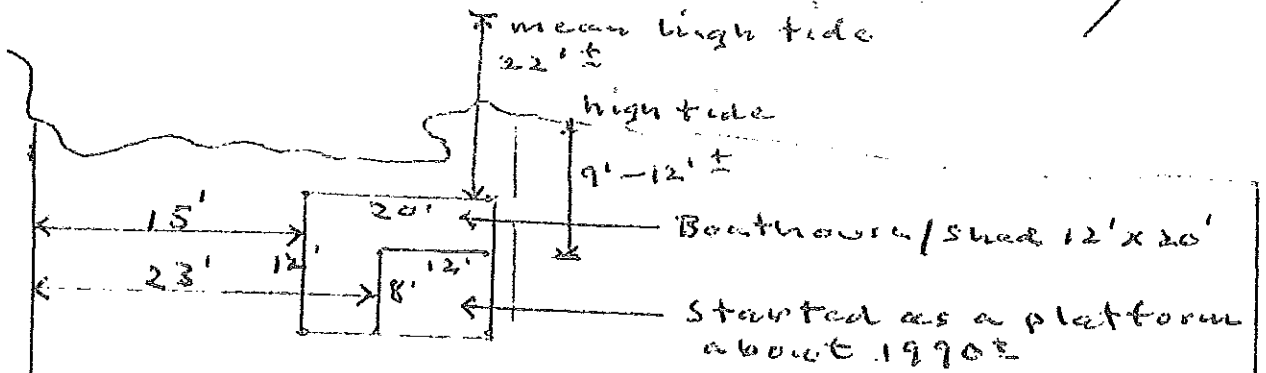 mean high tide
22' ±
high tide
9'-12' ±
15'
20'
Boathouse/Shed 12'x20'
12'
12'
23'
8'
Started as a platform
about 1990±